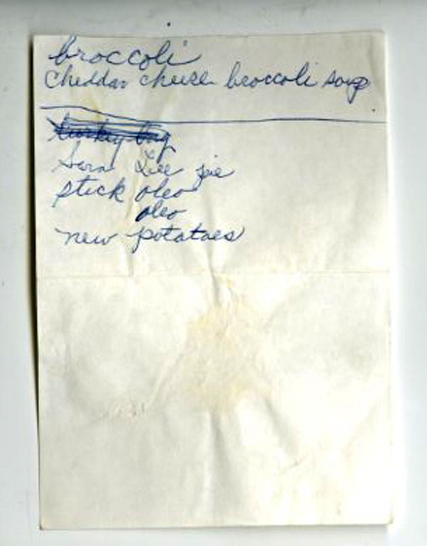 broccoli
Cheddar cheese broccoli soup
turkey bag
Sara Lee pie
stick oleo
oleo
new potatoes